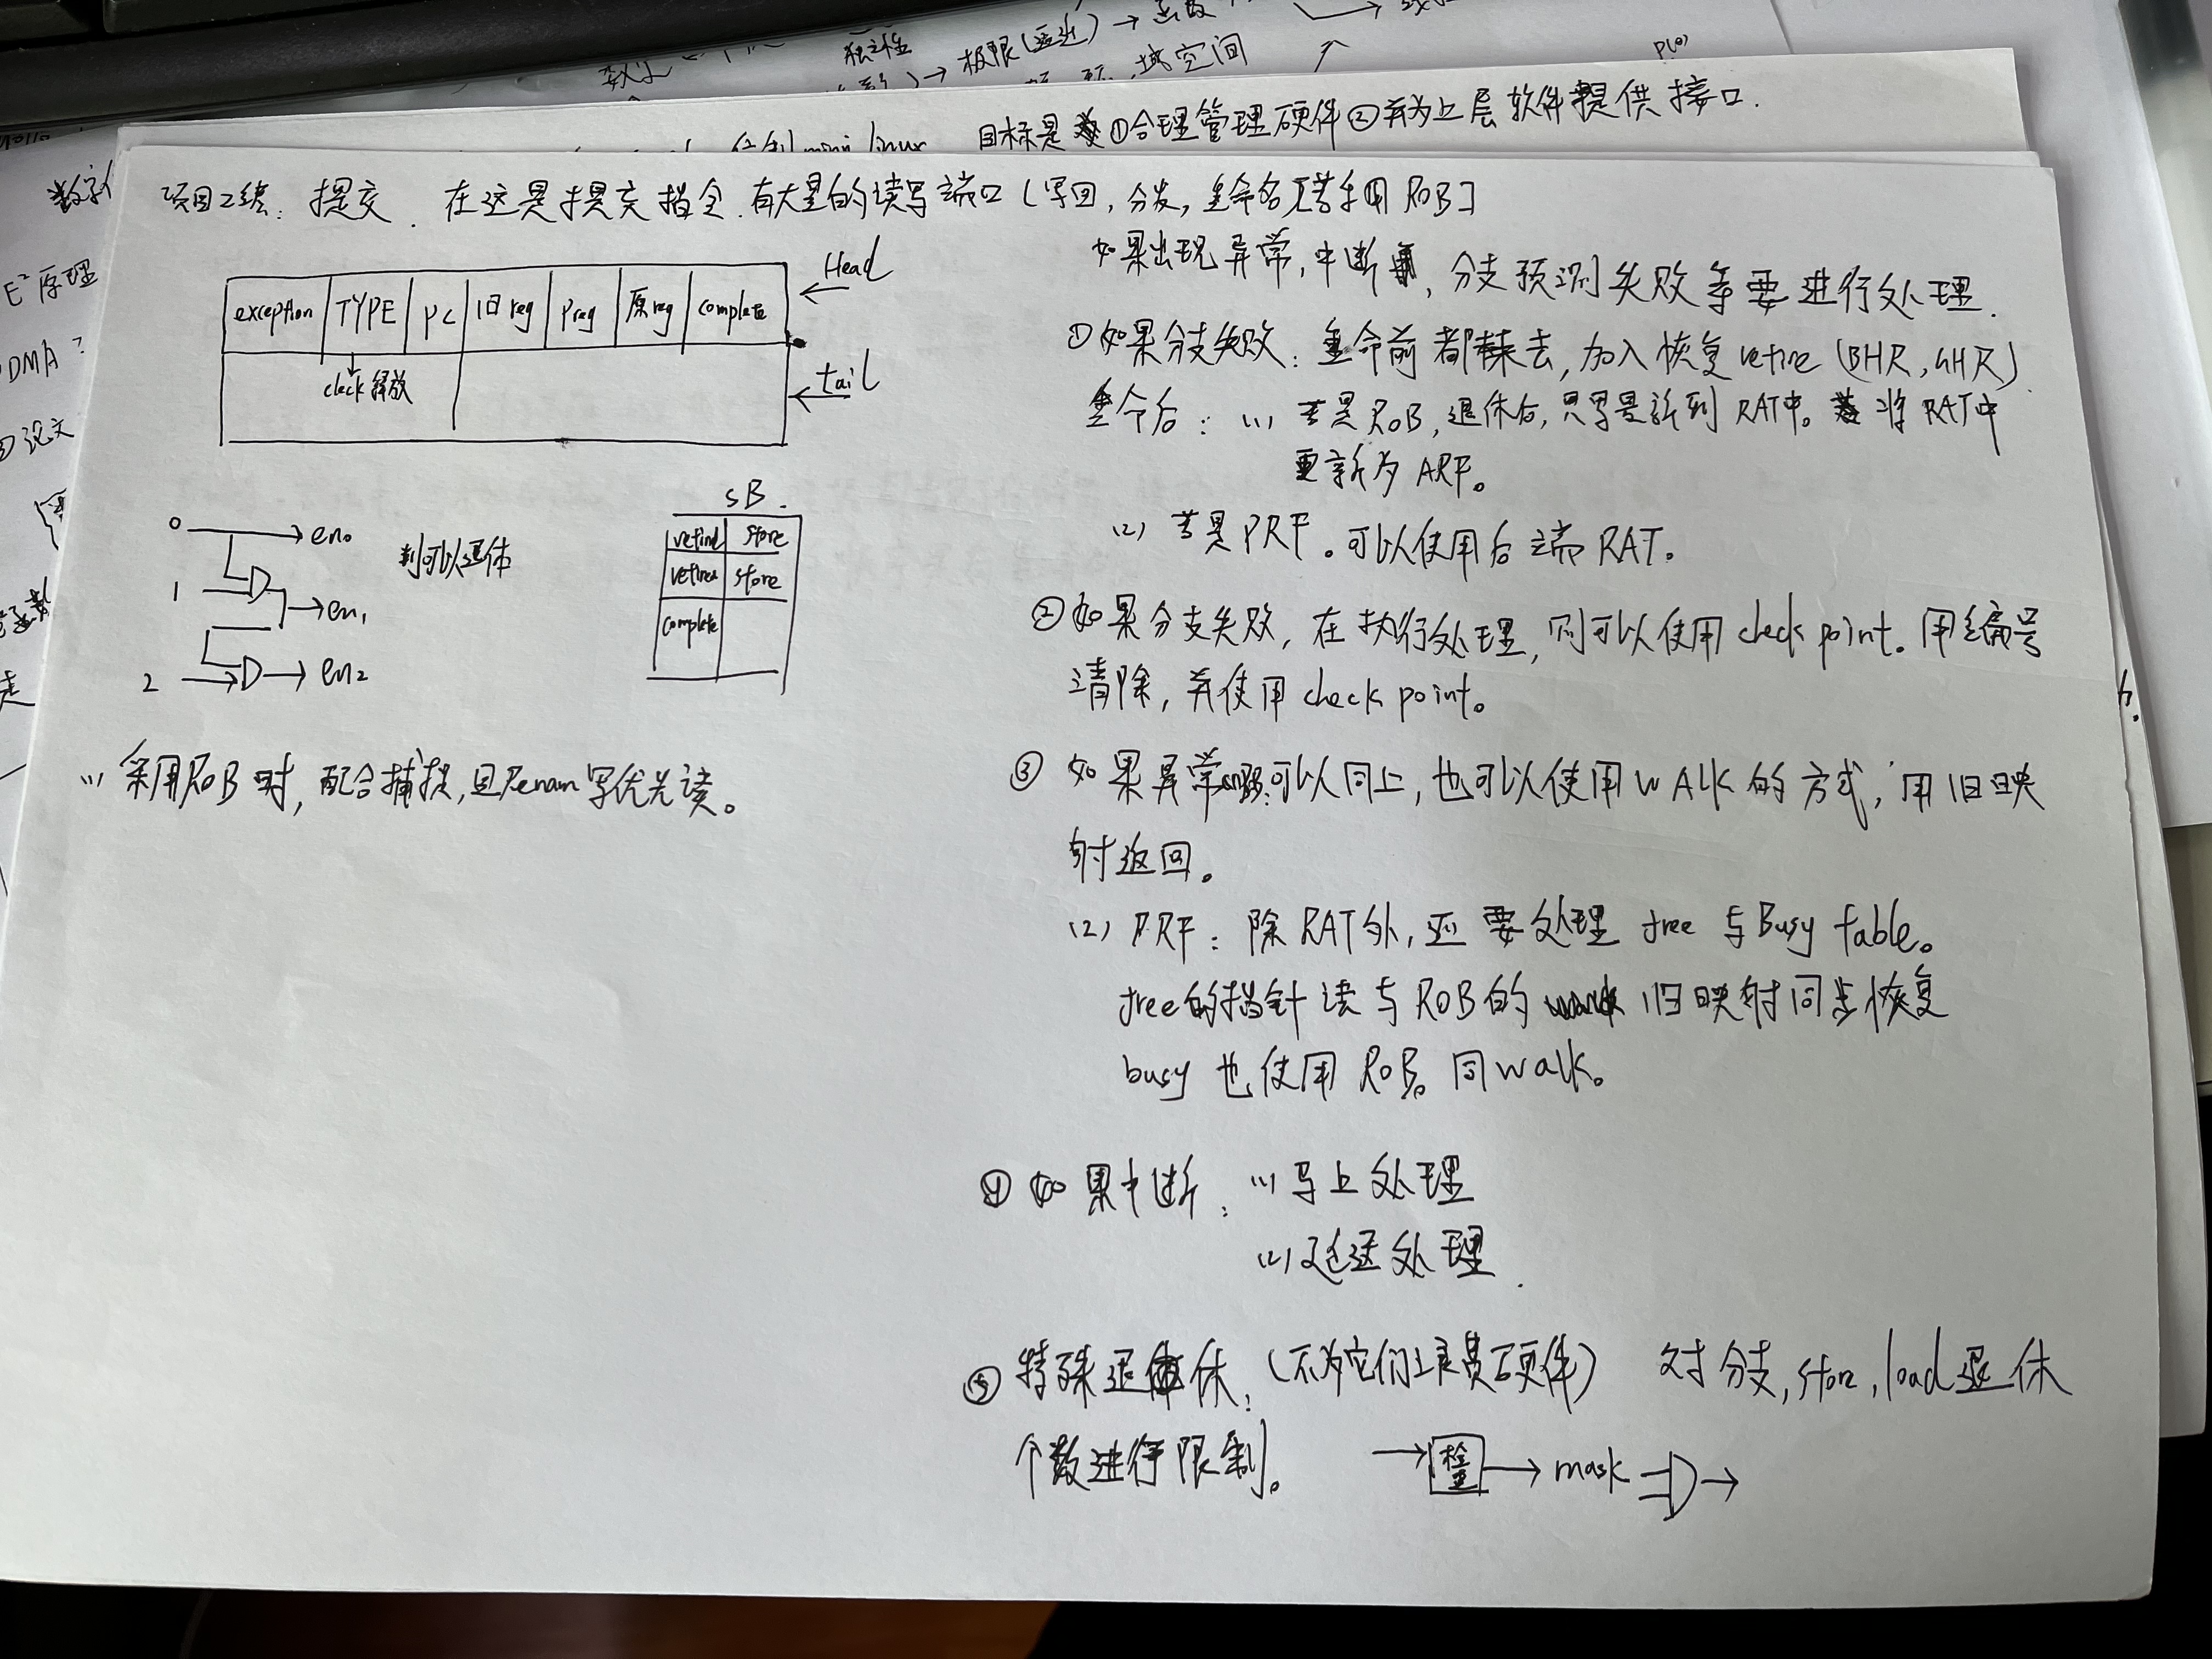 极限(逼近)→函数
空间
P(0)
目标是①合理管理硬件②并为上层软件提供接口.
mini linux
E²原理
DMA?
论文
项目总结: 提交. 在这是提交指令.有大量的读写端口(写回,分发,重命名若采用ROB]
Head
exception TYPE PC 旧reg Preg 原reg complete
check 释放
tail
0 en0
1 en1
2 en2
判可以退休
SB.
retired store
retired store
complete
(1) 采用ROB时,配合捕捉,且Renam写优先读。
如果出现异常,中断,分支预测失败等要进行处理.
①如果分支失败: 重命前都抹去,加入恢复retire (BHR,GHR)
重命后: (1) 若是ROB,退休后,只写最新到RAT中。将RAT中
重新为ARF。
(2) 若是PRF。可以使用后端RAT。
②如果分支失败,在执行处理,则可以使用check point.用编号
清除,并使用check point。
③ 如果异常:可以同上,也可以使用WALK的方式,用旧映
射返回。
(2) PRF: 除RAT外,还要处理free与Busy table。
free的指针读与ROB的旧映射同步恢复
busy也使用ROB。同walk。
④如果中断: (1)马上处理
(2)延迟处理.
⑤特殊退休: (不为它们浪费硬件) 对分支,store,load退休
个数进行限制。
检查 mask